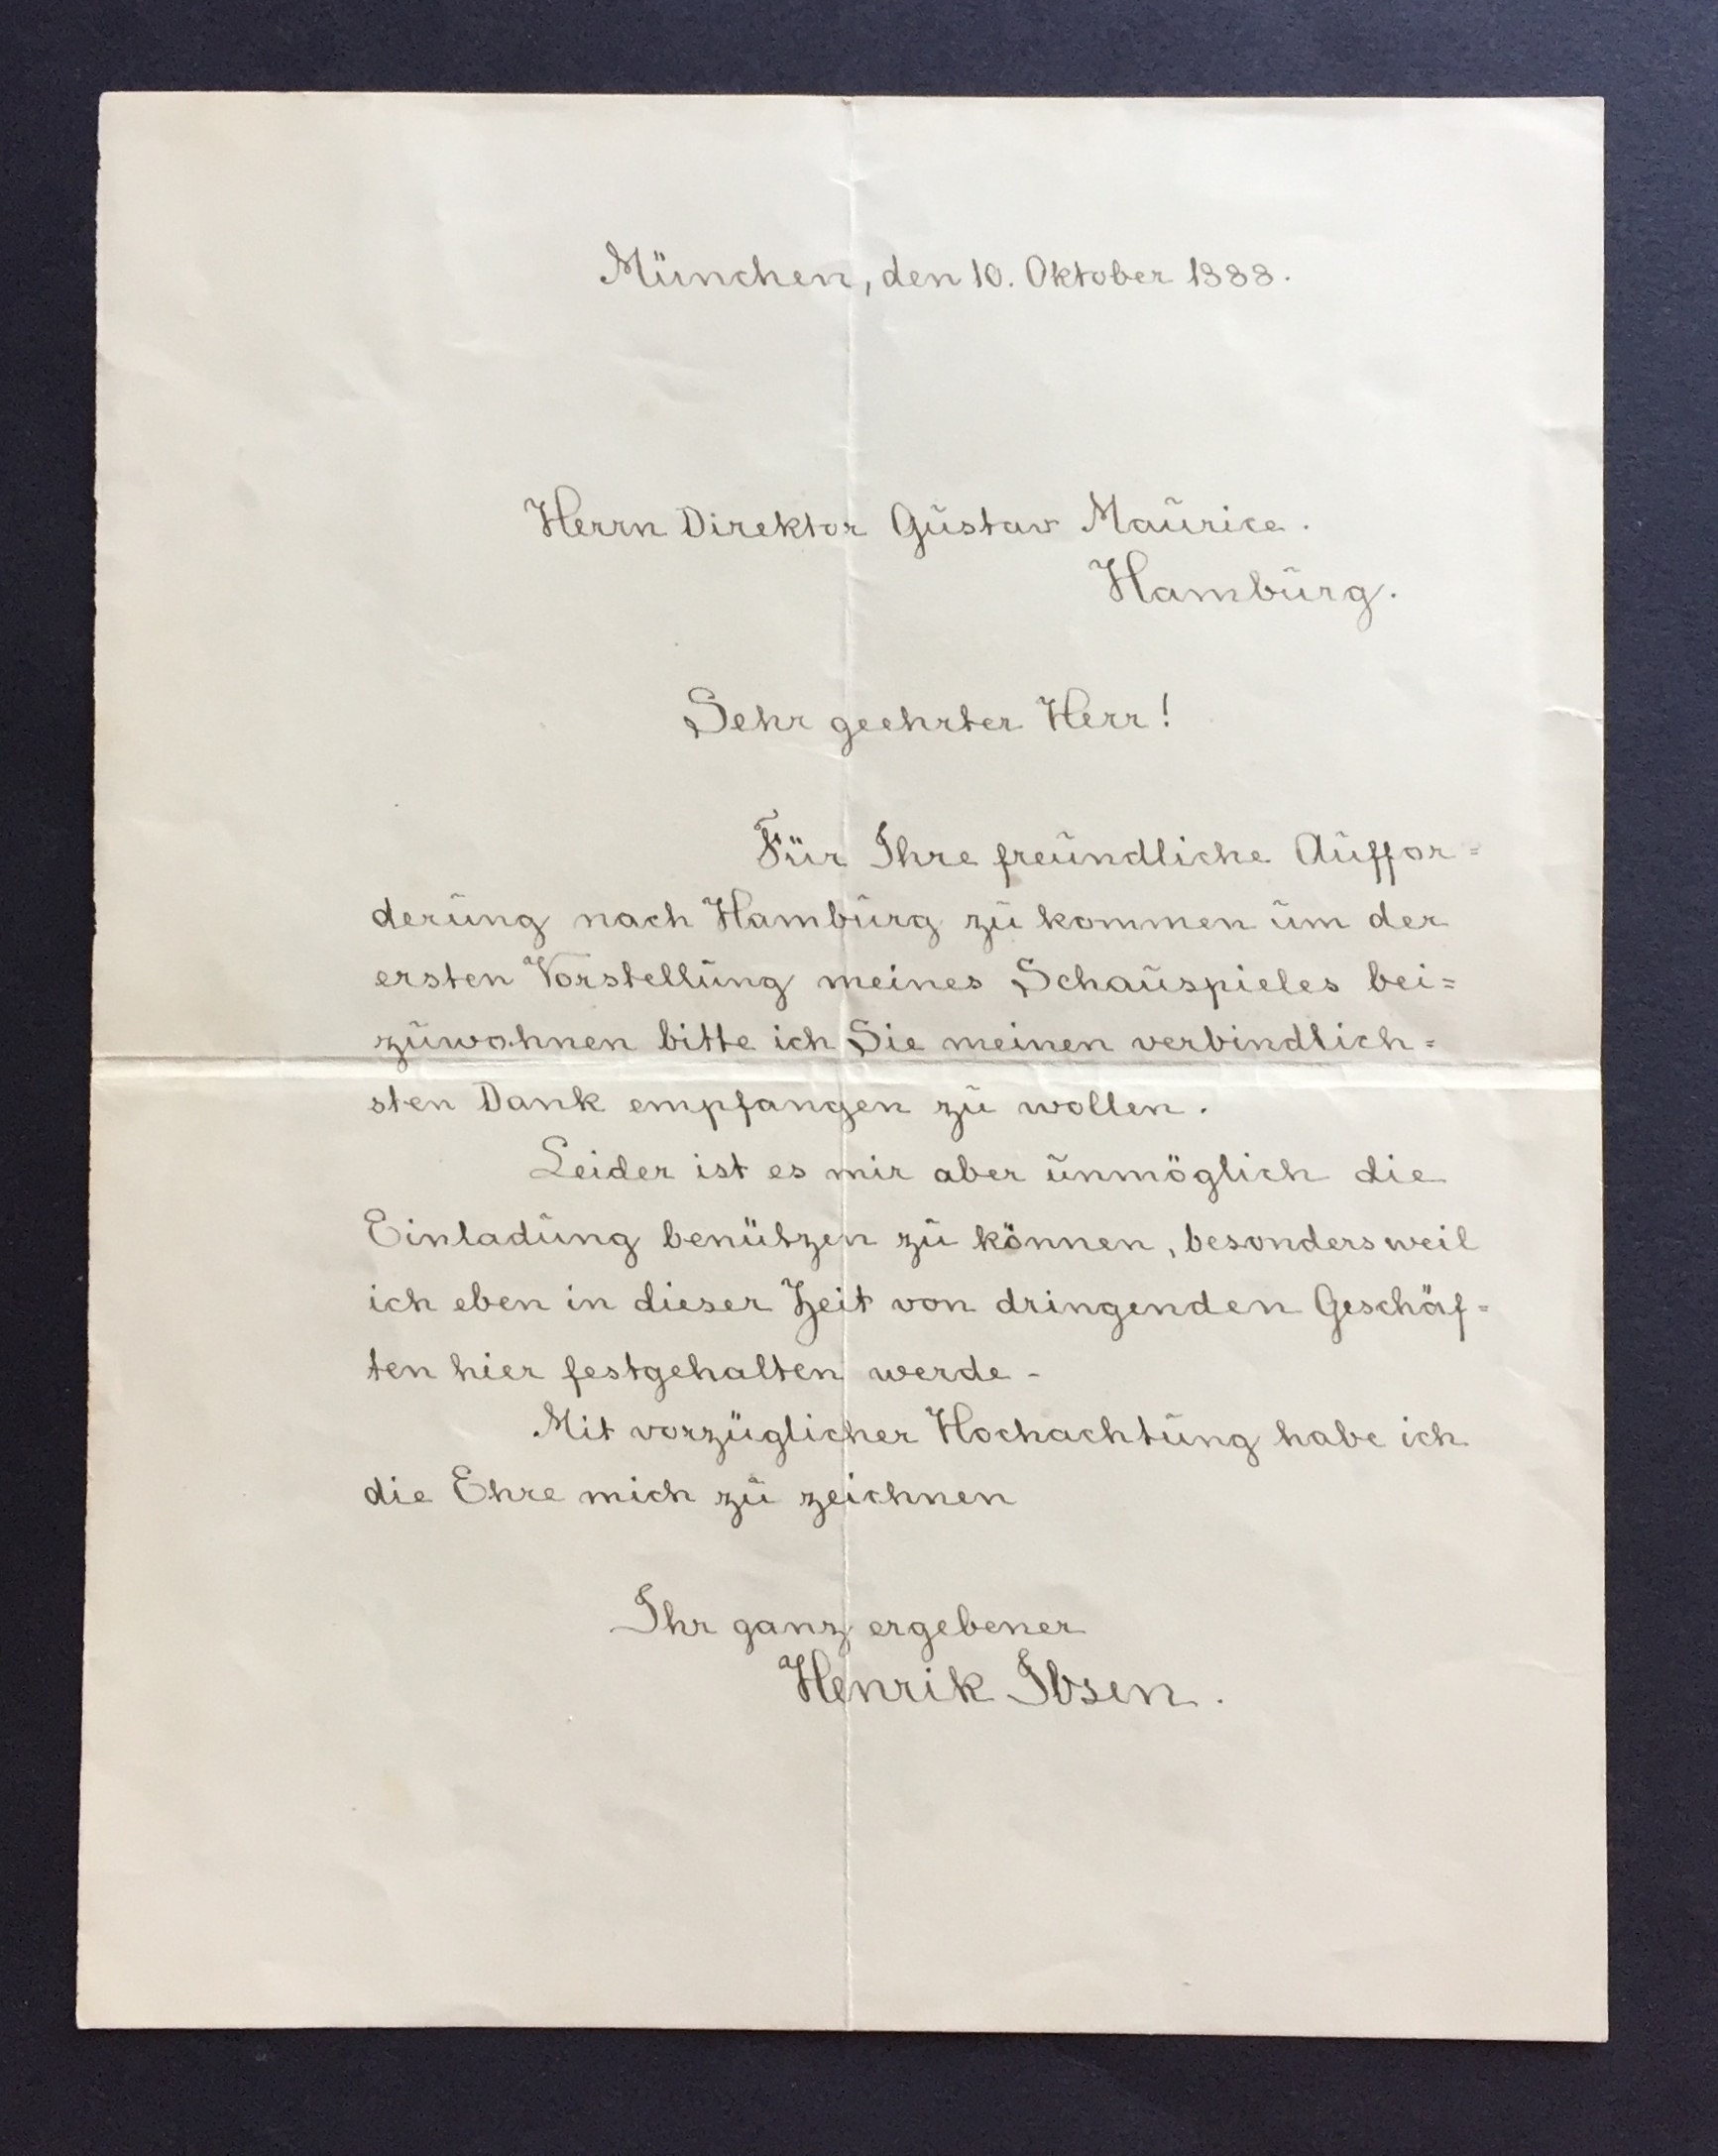 München, den 10. Oktober 1888.
Herrn Direktor Gustav Maurice.
Hamburg.
Sehr geehrter Herr!
Für Ihre freundliche Auffor=
derung nach Hamburg zu kommen um der
ersten Vorstellung meines Schauspieles bei=
zuwohnen bitte ich Sie meinen verbindlich=
sten Dank empfangen zu wollen.
Leider ist es mir aber unmöglich die
Einladung benützen zu können, besonders weil
ich eben in dieser Zeit von dringenden Geschäf=
ten hier festgehalten werde.
Mit vorzüglicher Hochachtung habe ich
die Ehre mich zu zeichnen
Ihr ganz ergebener
Henrik Ibsen.